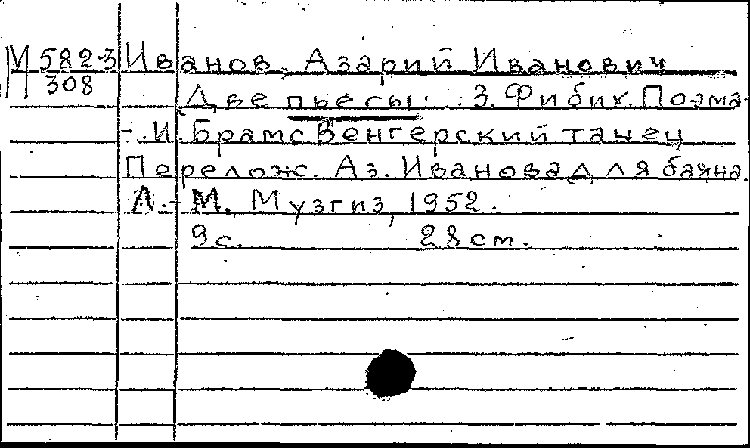 М 582-3 Иванов, Азарий Иванович
308
Две пьесы: З. Фибих. Поэма
- И. Брамс Венгерский танец
Перелож. Аз. Иванова для баяна.
Л.-М. Музгиз, 1952.
9 с. 28 см.